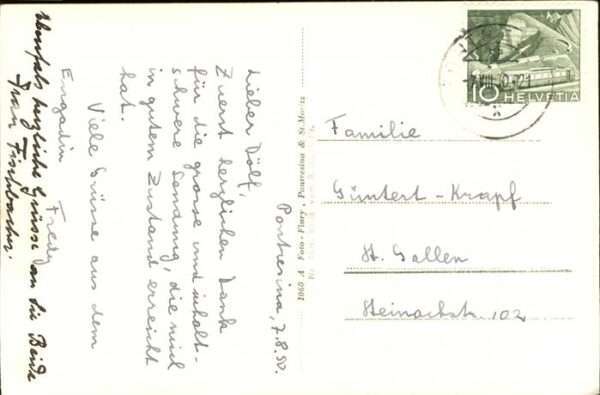 Pontresina, 7.8.50.
Lieber Dölf,
Zuerst herzlichen Dank
für die grosse und inhalt-
schwere Sendung, die mich
in gutem Zustand erreicht
hat.
Viele Grüsse aus dem
Engadin
Fredy
Ebenfals herzliche Grüsse an die Beide
Frau Fischbacher.
1060 A Foto - Flury, Pontresina & St. Moritz
10 HELVETIA
Familie
Güntert-Krapf
St. Gallen
Heinachstr. 102